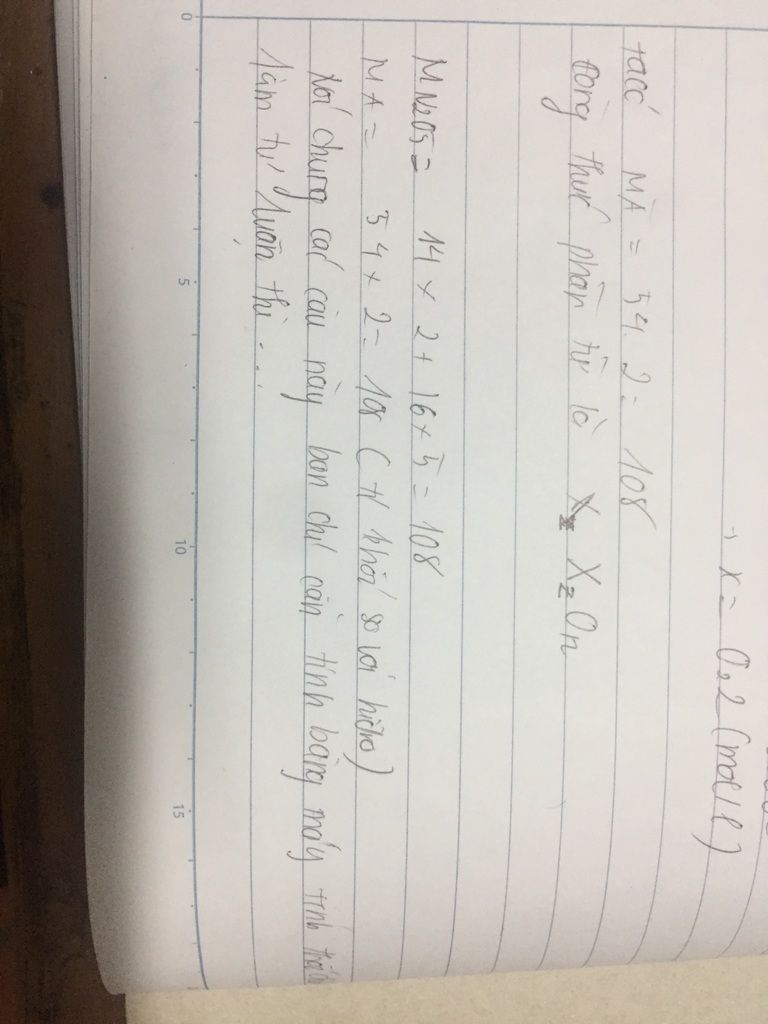 → x = 0,2 (mol/l)
ta có MA = 54.2 = 108
công thức phân tử là X2On
MN2O5 = 14 x 2 + 16 x 5 = 108
MA = 54 x 2 = 108 (tỉ khối so với hiđro)
Nói chung các câu này bạn chỉ cần tính bằng máy tính
làm tự luận thì ...
0
5
10
15